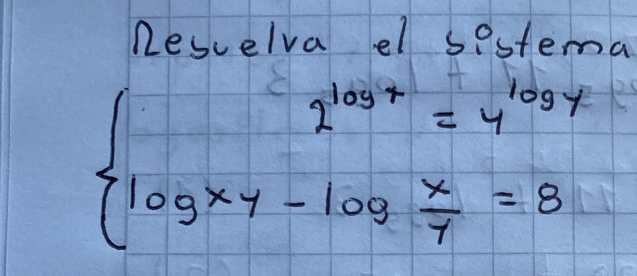 Resuelva el sistema
2^{log x} = 4^{log y}
log xy - log \frac{x}{y} = 8